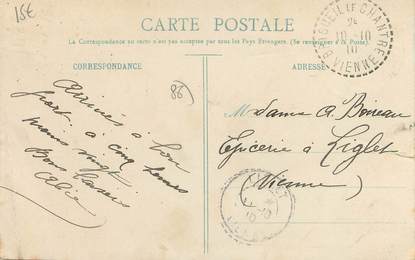 15€
CARTE POSTALE
La Correspondance au recto n'est pas acceptée par tous les Pays Étrangers. (Se renseigner à la Poste)
CORRESPONDANCE
ADRESSE
86
BRIGUEIL LE CHANTRE
10-10
10
VIENNE
Arrivés à bon
port à cinq heures
moins vingt
Bons baisers
Madame A. Boireau
Épicerie à Liglet
(Vienne)